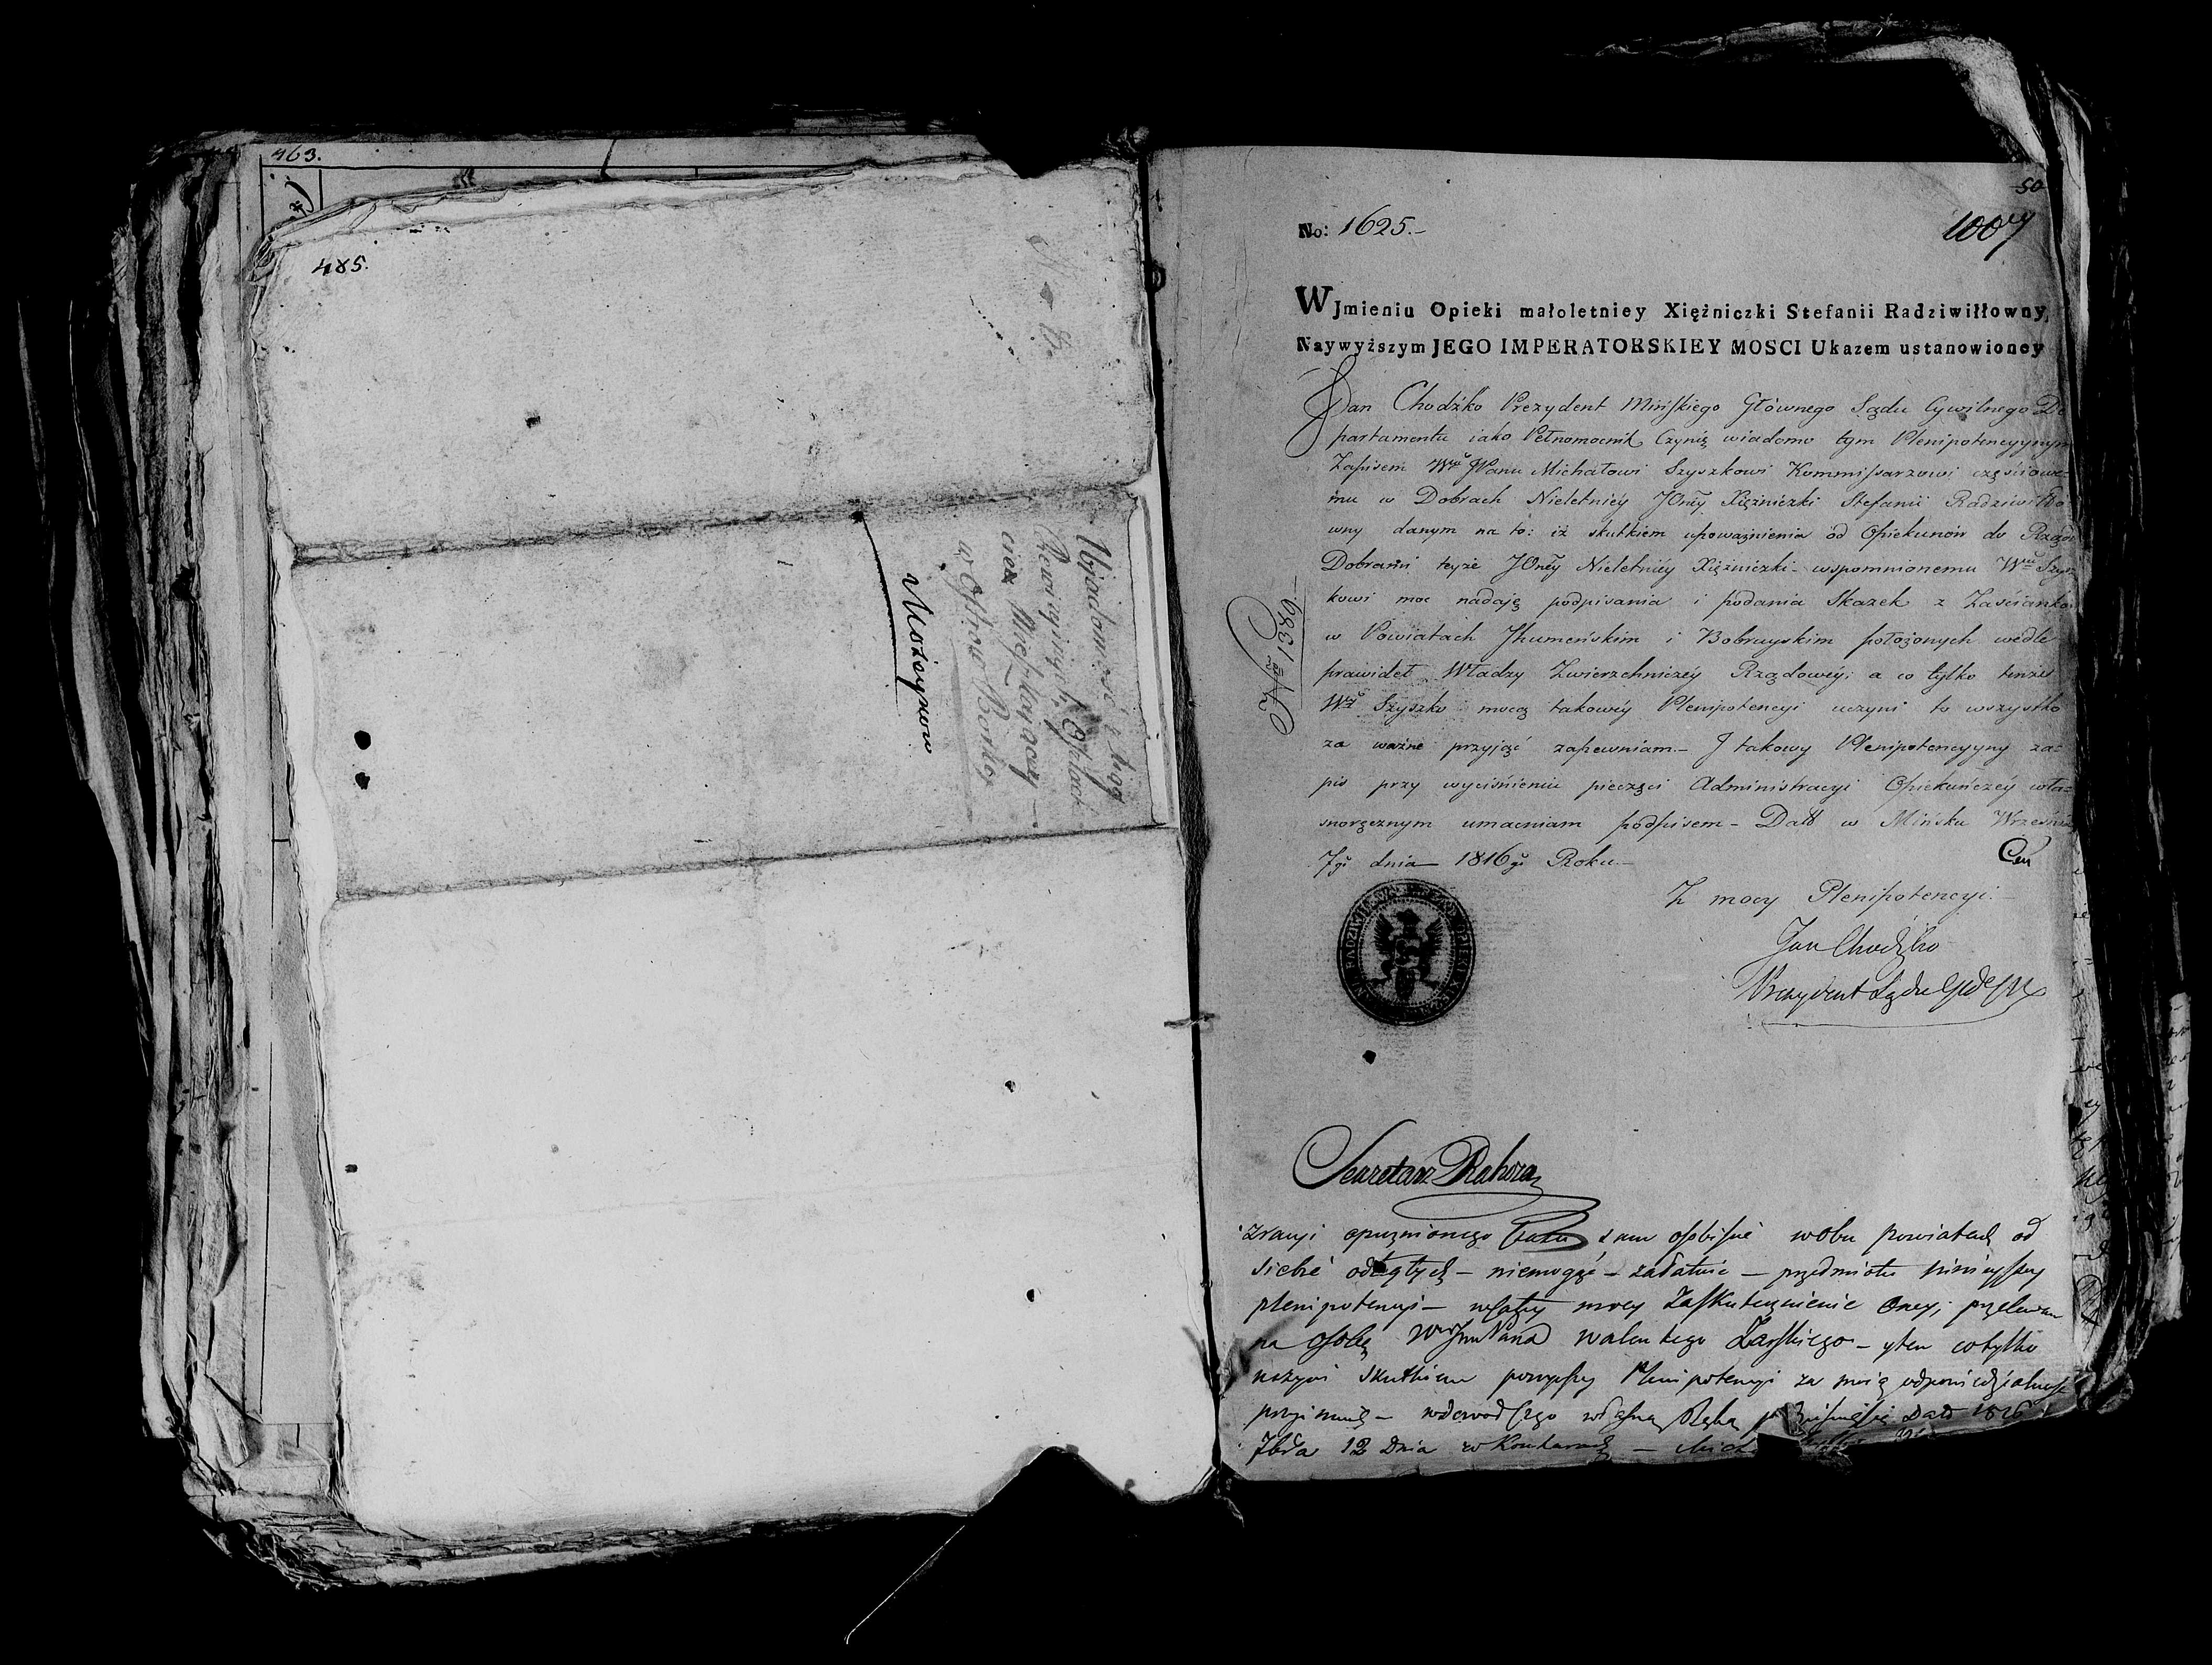 463.
485.
N 8.
Wiadomość z ligg
Rewizyinych,
w Ostrow
50
1007
No: 1625.-
WJmieniu Opieki małoletniey Xiężniczki Stefanii Radziwiłłowny,
Naywyższym JEGO IMPERATORSKIEY MOSCI Ukazem ustanowioney
Jan Chodźko Prezydent Mińskiego Głównego Sądu Cywilnego De
partamentu iako Pełnomocnik Czynię wiadomo tym Plenipotencyynym
Zapisem Wmu JPanu Michałowi Szyszkowi Kommissarzowi częściowe-
mu w Dobrach Nieletniéy JOnéy Xiężniczki Stefanii Radziwiłło
wny danym na to: iż skutkiem upoważnienia od Opiekunów do Rządu
Dobrami teyże JOnéy Nieletniéy Xiężniczki wspomnionemu Wmu Szysz
kowi moc nadaię podpisania i podania Skazek z Zaścianków
w Powiatach Jhumeńskim i Bobruyskim położonych wedle
prawideł Władzy Zwierzchniczéy Rządowéy; a co tylko tenże
Wny Szyszko mocą takowéy Plenipotencyi uczyni to wszystko
za ważne przyjąć zapewniam.- J takowy Plenipotencyyny za=
pis przy wyciśnieniu pieczęci Administracyi Opiekuńczéy wła=
snoręcznym umacniam podpisem - Datt w Mińsku Września
7go dnia 1816go Roku.-
No 1389
Z mocy Plenipotencyi.
Jan Chodźko
Prezydent Sądu
Sekretarz Rahoza
zracyi opuznionego Czasu sam osobiście wobu powiatach od
siebie odległych - niemogąc - zadatnie - przedmiotu ninieyszey
plenipotencyi - mocy Zaskutecznienie Oney, przelewam
na osobę WJmPana Walentego Zarskiego - y ten cotylko
uczyni skutkiem powyższey Plenipotencyi za moią odpowiedzialność
przyimuię - wdowod czego własną Ręką Datt 1816
7bra 12 Dnia w